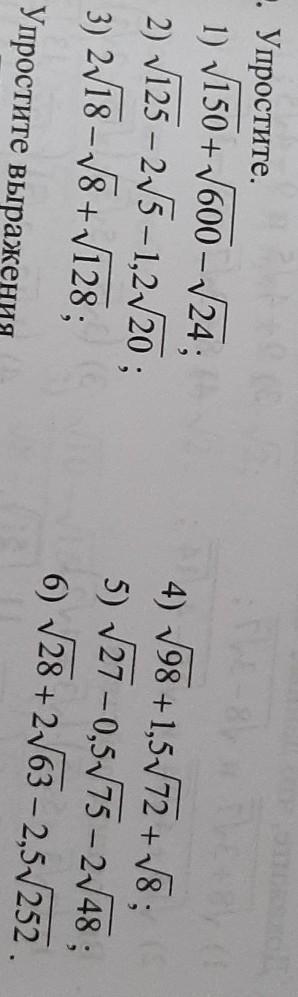 . Упростите.
1) √150 + √600 − √24;
2) √125 − 2√5 − 1,2√20;
3) 2√18 − √8 + √128;
4) √98 + 1,5√72 + √8;
5) √27 − 0,5√75 − 2√48;
6) √28 + 2√63 − 2,5√252.
Упростите выражения